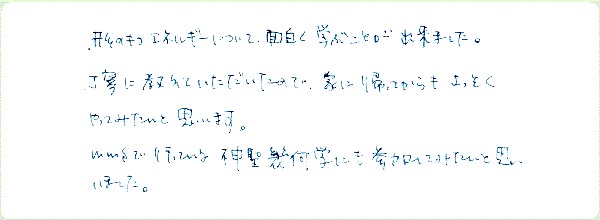 形のもつエネルギーについて、面白く学ぶことが出来ました。
丁寧に教えていただいたので、家に帰ってからもさっそく
やってみたいと思います。
行っている神聖幾何学にも参加してみたいと思い
ました。